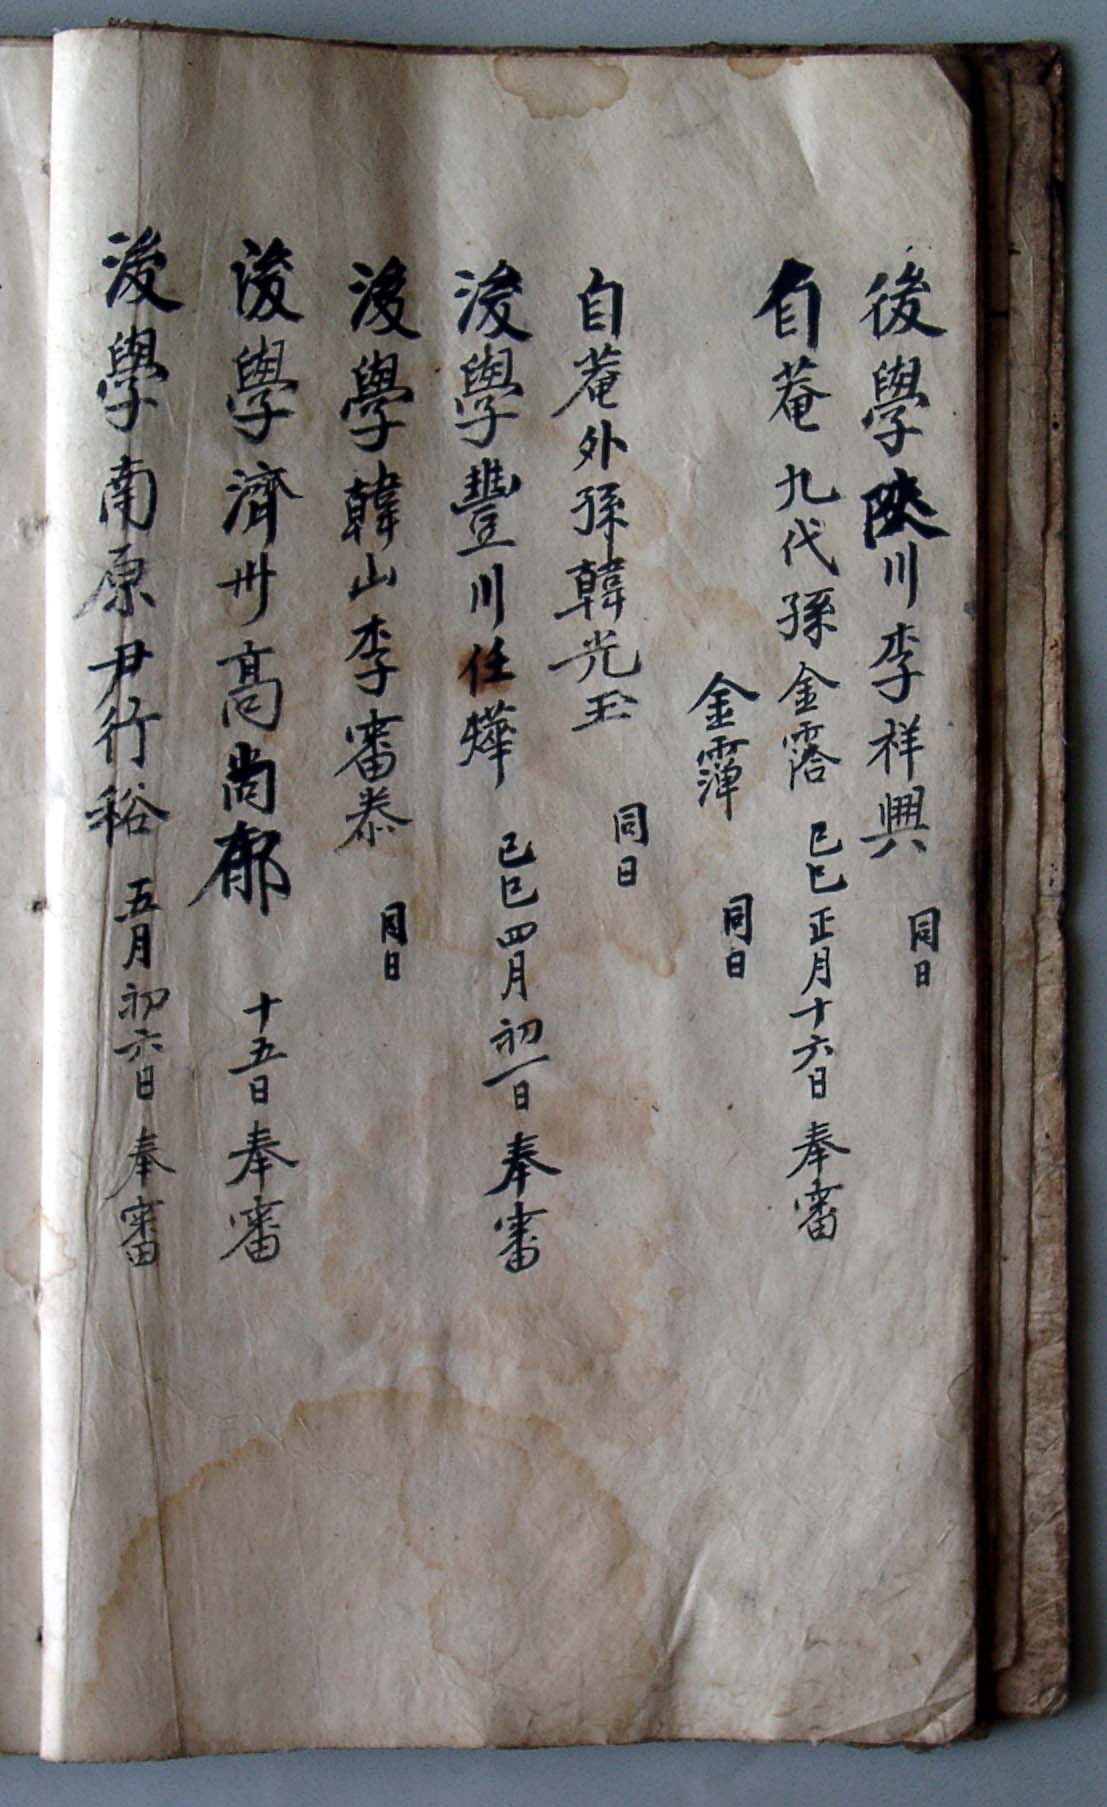 後學陜川李祥興 同日
自菴九代孫金霛 己巳正月十六日 奉審
金霔 同日
自菴外孫韓光玉 同日
後學豊川任爗 己巳四月初一日 奉審
後學韓山李審泰 同日
後學濟州高尚郁 十五日 奉審
後學南原尹行裕 五月初六日 奉審